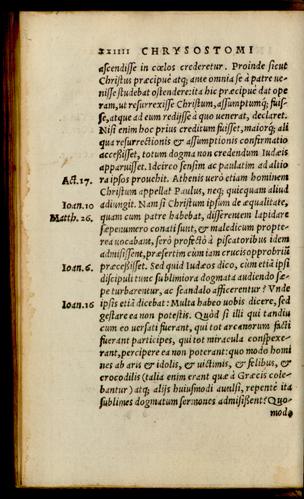 xxiiii CHRYSOSTOMI
ascendisse in cœlos crederetur. Proinde sicut
Christus præcipuè atq; ante omnia se à patre ve-
nisse studebat ostendere: ita hic præcipuè dat ope
ram, ut resurrexisse Christum, assumptumq; fuis-
se, atque ad eum redijsse à quo venerat, declaret.
Nisi enim hoc prius creditum fuisset, maiorq; ali
qua resurrectionis & assumptionis confirmatio
accessisset, totum dogma non credendum Iudæis
apparuisset. Idcirco sensim ac paulatim ad altio
Act. 17. ra ipsos prouehit. Athenis verò etiam hominem
Christum appellat Paulus, neq; quicquam aliud
Ioan. 10 adiungit. Nam si Christum ipsum de æqualitate,
Matth. 26. quam cum patre habebat, disserentem lapidare
sæpenumero conati sunt, & maledicum propte-
rea uocabant, serò profectò à piscatoribus idem
admisissent, præsertim cùm iam crucis opprobriũ
Ioan. 6. præcessisset. Sed quid Iudæos dico, cùm etiã ipsi
discipuli tunc sublimiora dogmata audiendo sæ-
pe turbarentur, ac scandalo afficerentur? Vnde
Ioan. 16 ipsis etiã dicebat: Multa habeo uobis dicere, sed
gestare ea non potestis. Quòd si illi qui tandiu
cum eo versati fuerant, qui tot arcanorum facti
fuerant participes, qui tot miracula conspexe-
rant, percipere ea non poterant: quo modo homi
nes ab aris & idolis, & uictimis, & felibus, &
crocodilis (talia enim erant quæ à Græcis cole-
bantur) atq; alijs huiusmodi auulsi, repentè ita
sublimes dogmatum sermones admisissent? Quo-
modo